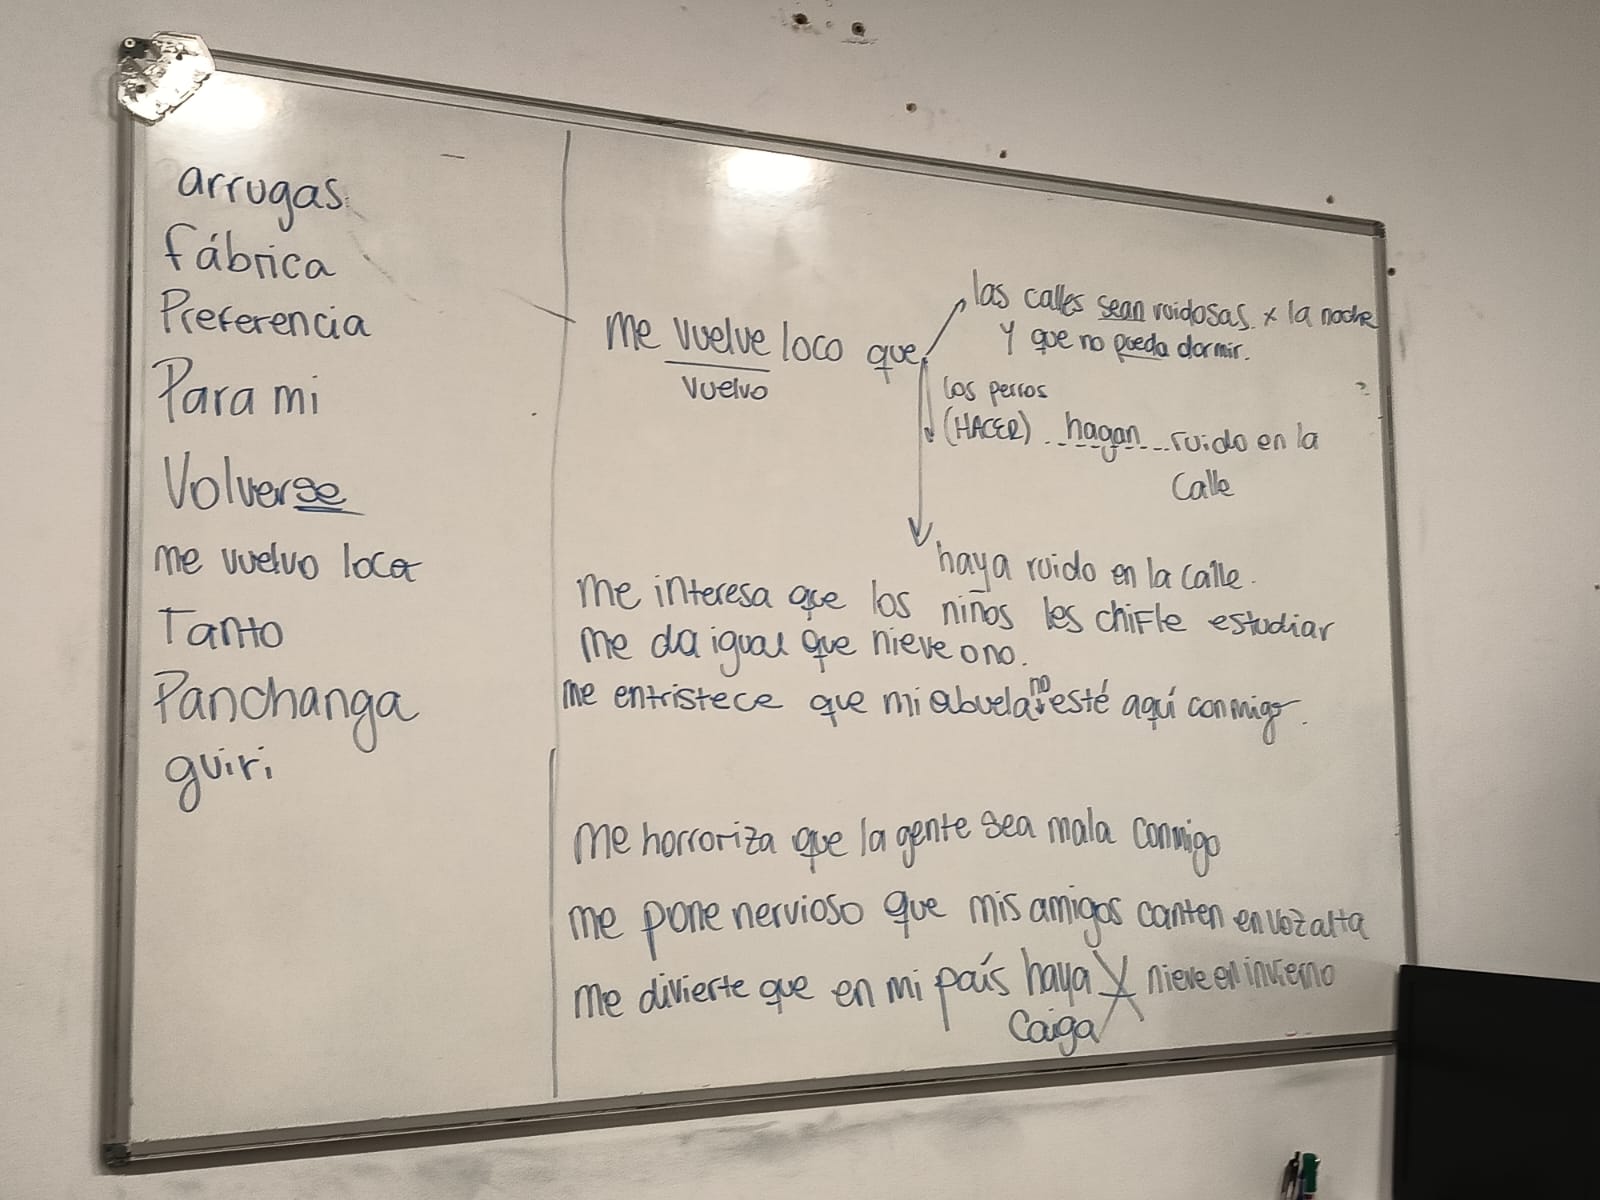 arrugas
fábrica
Preferencia
Para mi
Volverse
me vuelvo loca
Tanto
Panchanga
guiri
me vuelve loco que
vuelvo
las calles sean ruidosas x la noche
y que no pueda dormir.
los perros
(HACER) hagan ruido en la
calle
haya ruido en la calle.
me interesa que los niños les chifle estudiar
me da igual que nieve o no.
me entristece que mi abuela no esté aquí conmigo.
me horroriza que la gente sea mala conmigo
me pone nervioso que mis amigos canten en voz alta
me divierte que en mi país haya y nieve en invierno
caiga